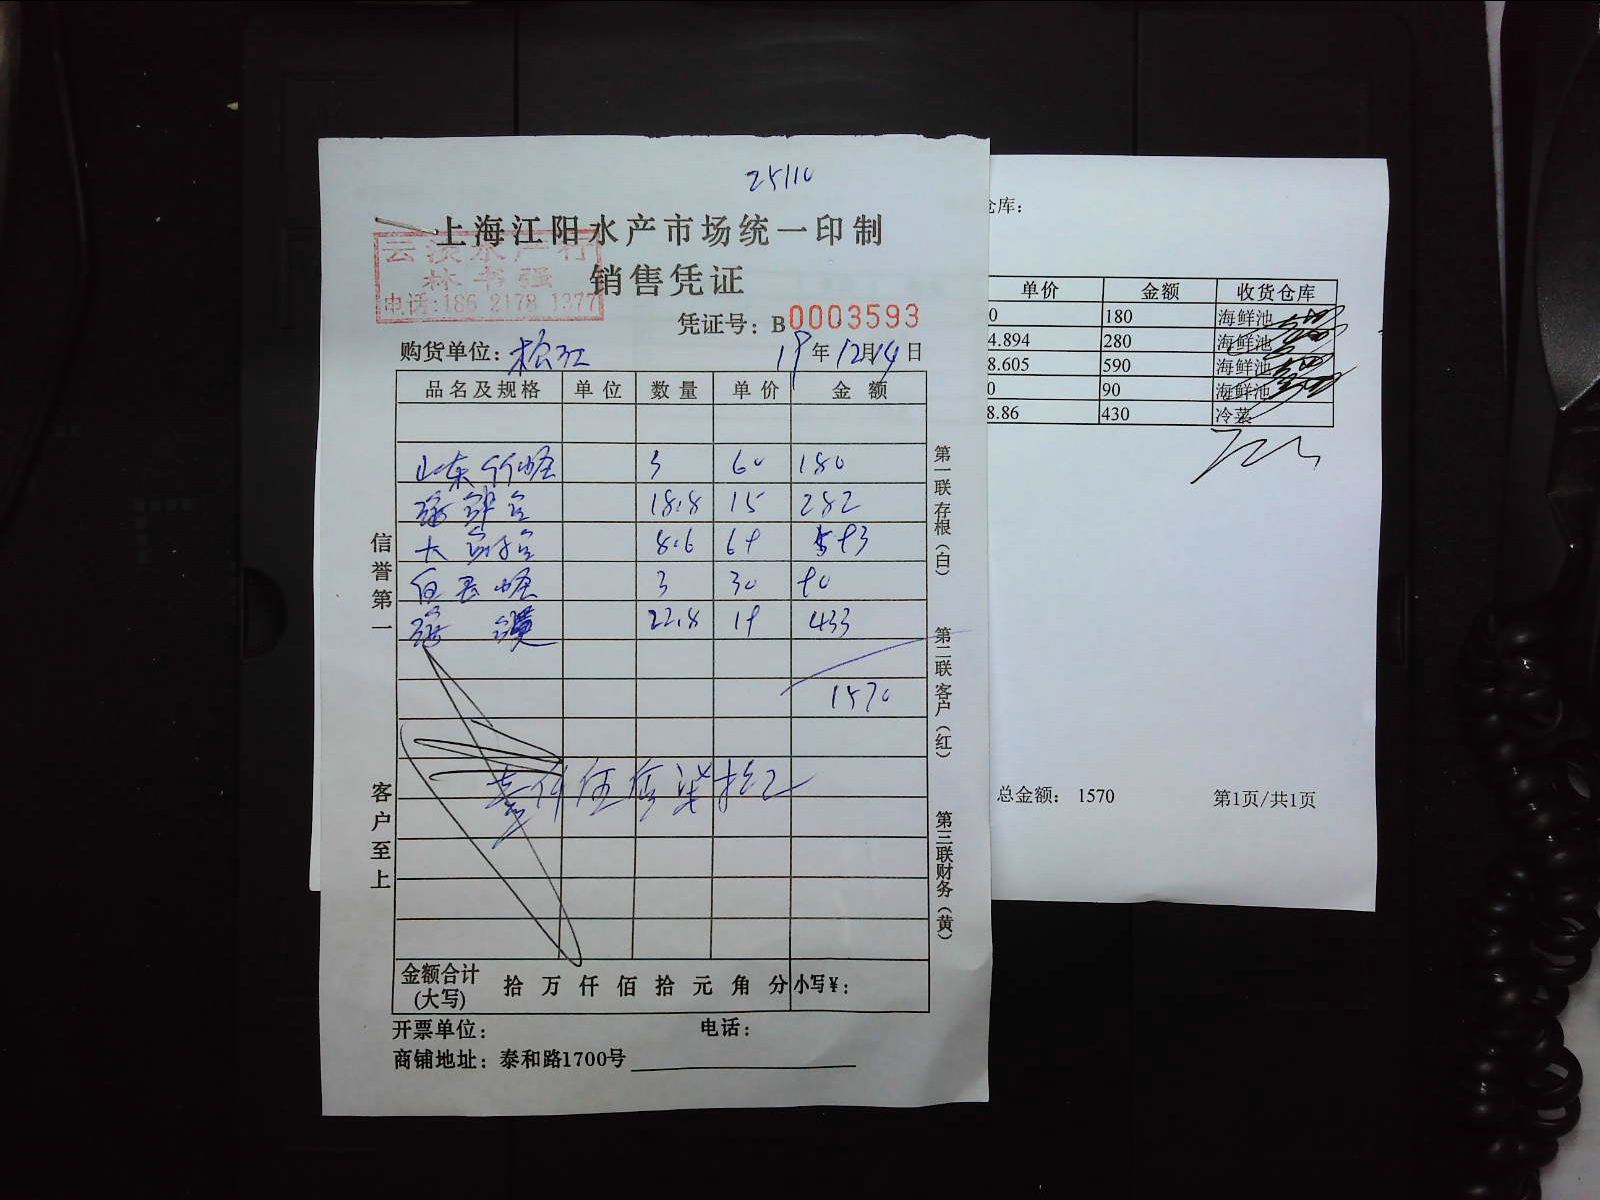 25110
上海江阳水产市场统一印制
云 水产行
林书强
销售凭证
电话:186 2178 1377
凭证号：B0003593
购货单位：松江
19年12月14日
品名及规格 单位 数量 单价 金额
山东竹蛏 3 60 180
18.8 15 282
大 8.6 69 593
白玉蛏 3 30 90
22.8 19 433
1570
壹仟伍佰柒拾元
金额合计(大写) 拾 万 仟 佰 拾 元 角 分 小写¥：
开票单位： 电话：
商铺地址：泰和路1700号
信誉第一
客户至上
第一联存根（白）
第二联客户（红）
第三联财务（黄）
仓库：
单价 金额 收货仓库
0 180 海鲜池
4.894 280 海鲜池
8.605 590 海鲜池
0 90 海鲜池
8.86 430 冷菜
总金额： 1570 第1页/共1页